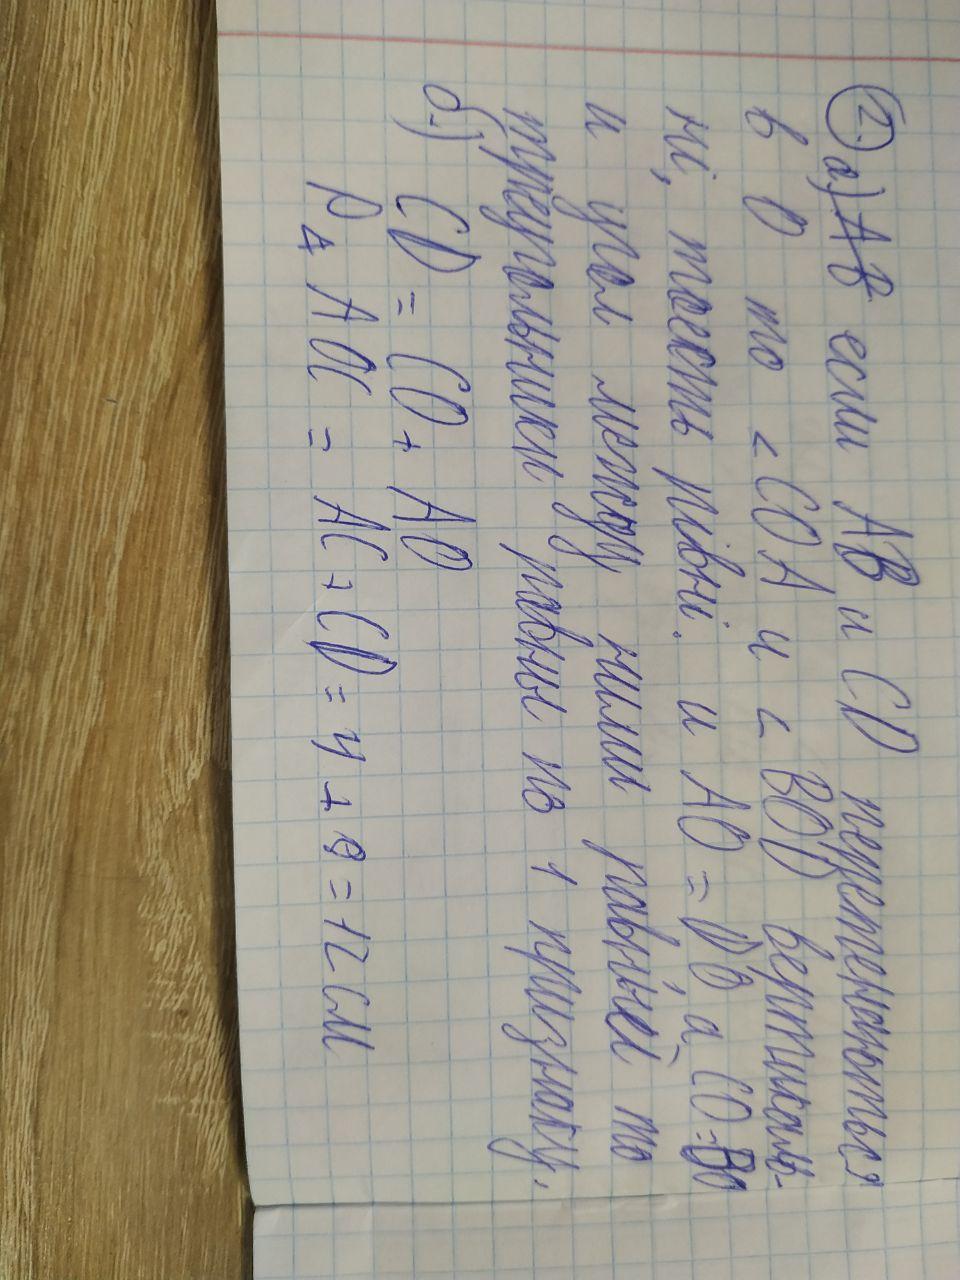 2. а) АВ если АВ и CD перетенаються
в О то <COA и < BOD вертикаль-
ні, тоесть рівні. и АО = DВ а СО=ВО
и угол между ними равный то
треугольники равны по 1 признаку.
б.) CD = CO + AO
P△ AOC = AC + CD = 4 + 8 = 12 см